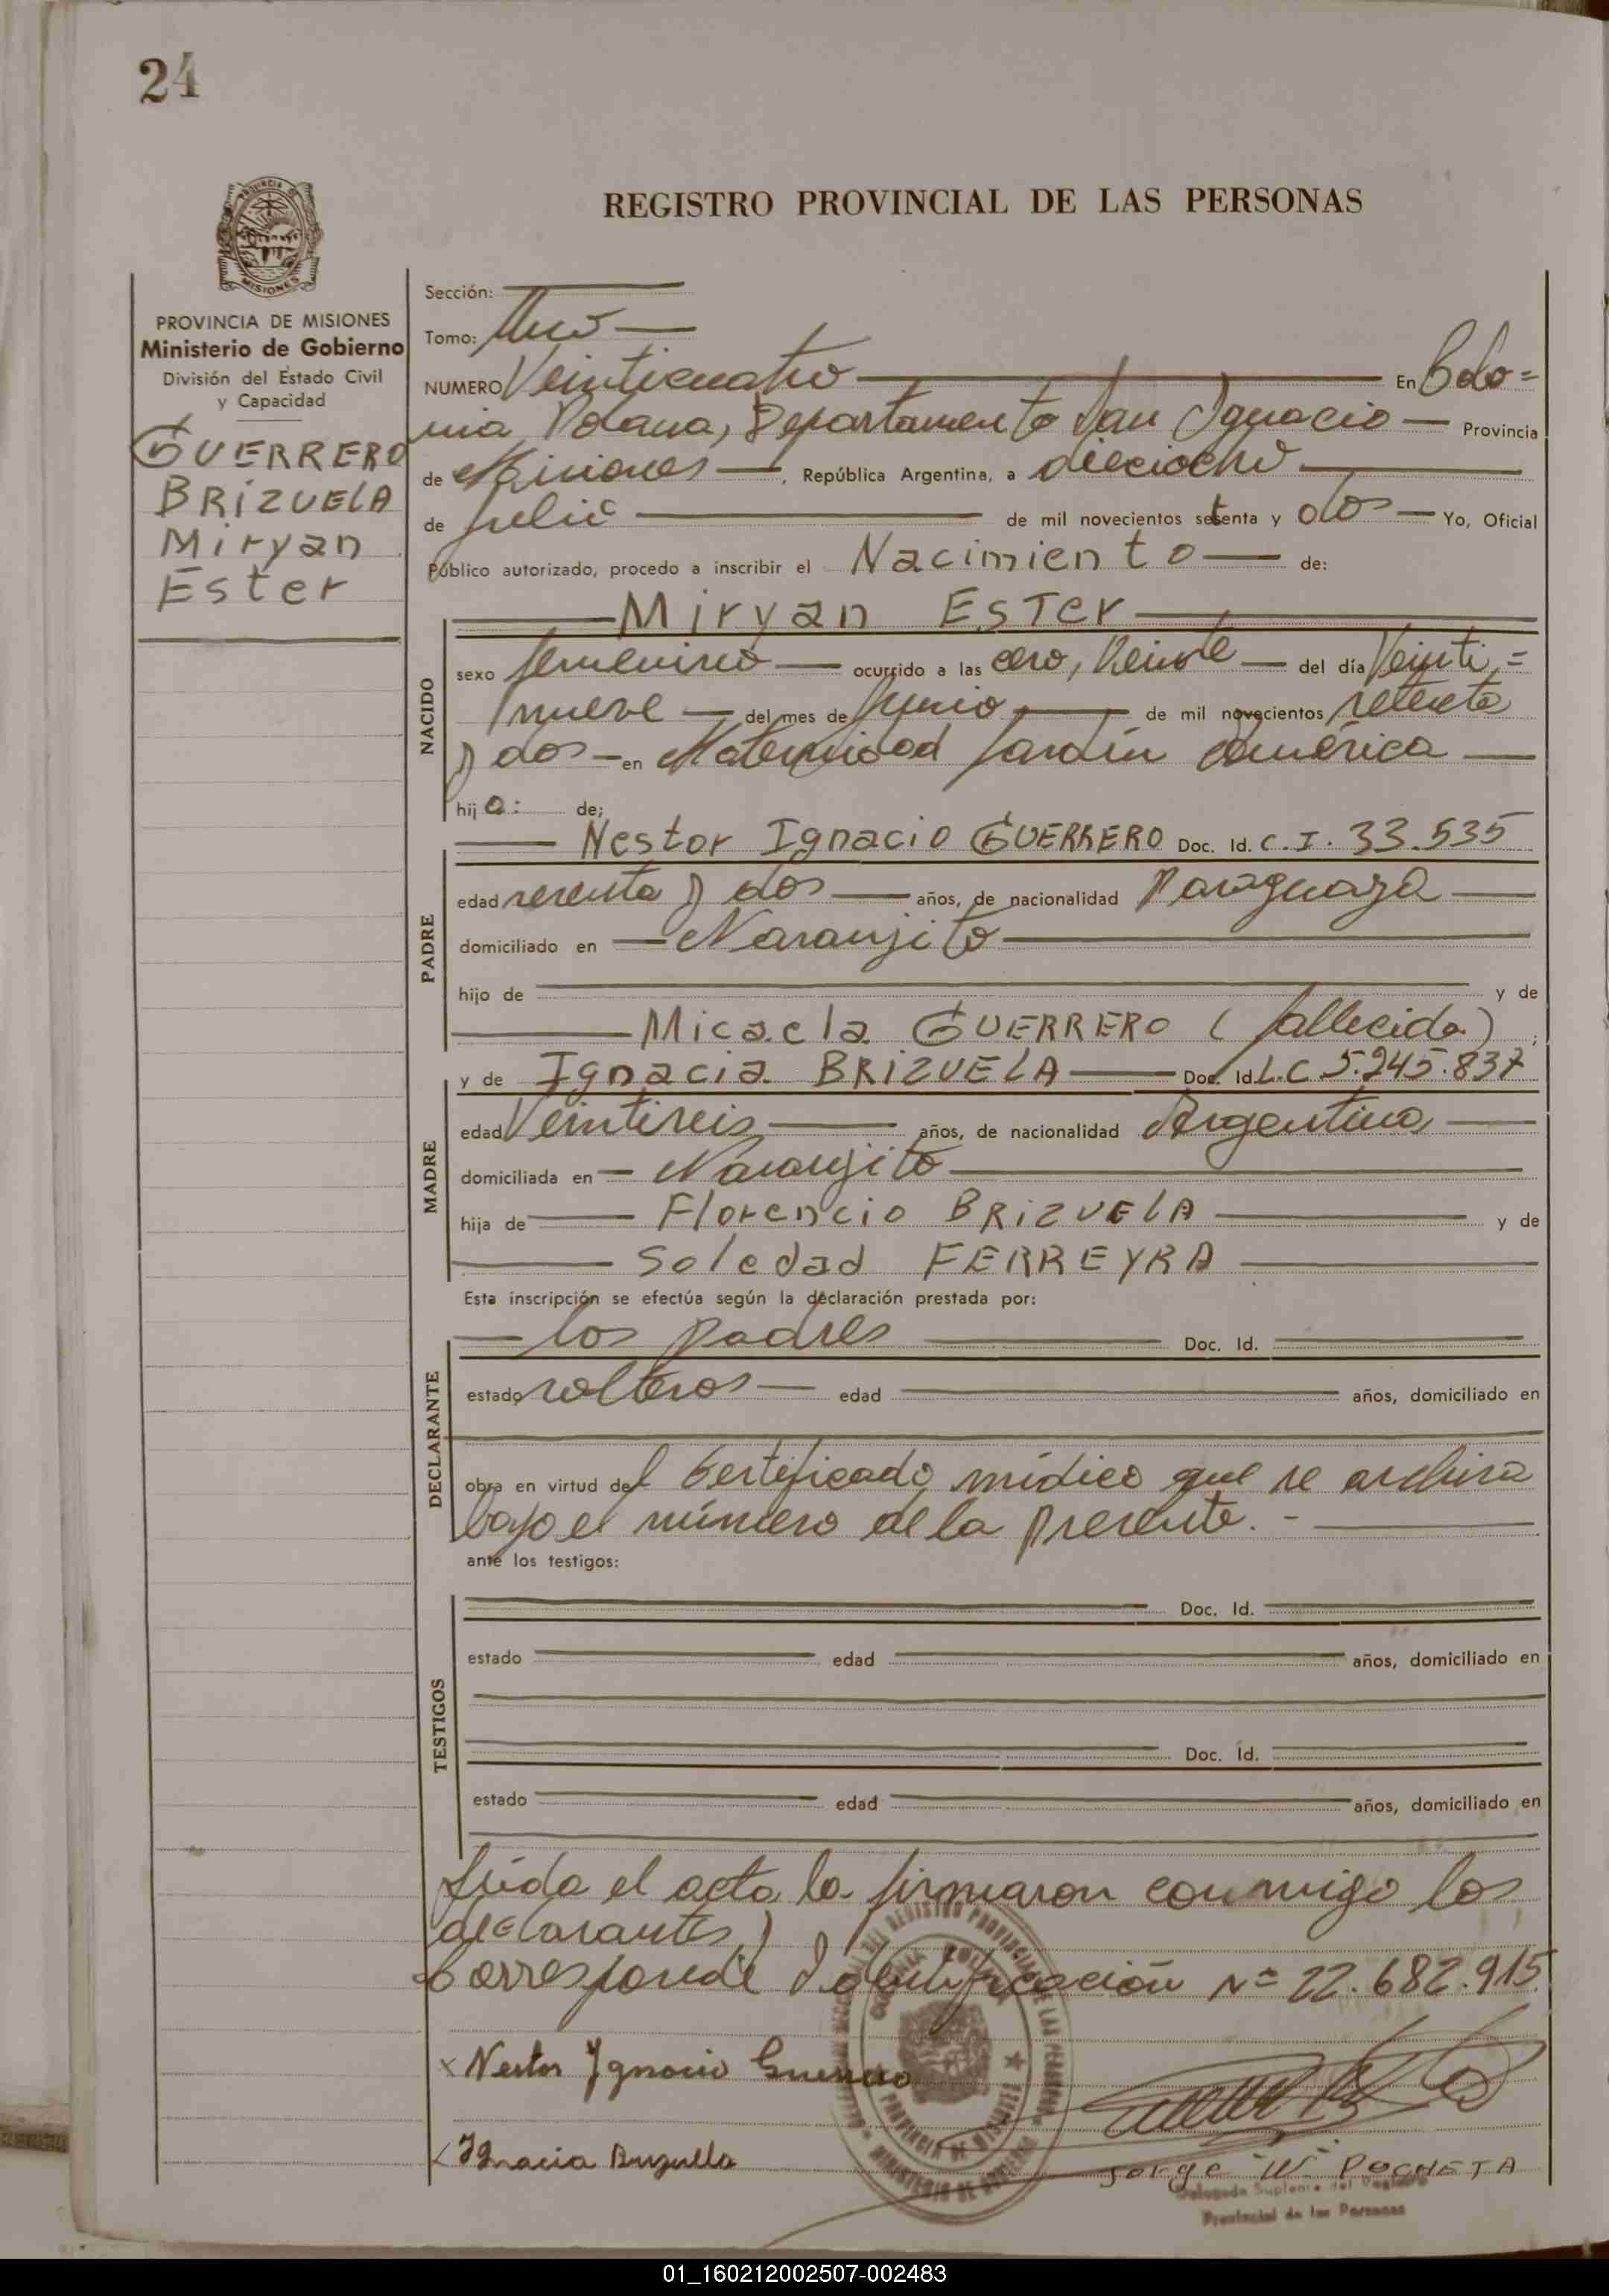 24
REGISTRO PROVINCIAL DE LAS PERSONAS
PROVINCIA DE MISIONES
Ministerio de Gobierno
División del Estado Civil
y Capacidad
GUERRERO
BRIZUELA
Miryan
Ester
Sección:
Tomo: Uno
NUMERO Veinticuatro En Colo=
nia Polana, Departamento San Ignacio Provincia
de Misiones, República Argentina, a dieciocho
de Julio de mil novecientos setenta y dos Yo, Oficial
Público autorizado, procedo a inscribir el Nacimiento de:
Miryan Ester
NACIDO
sexo femenino ocurrido a las cero, Veinte del día Veinti=
nueve del mes de Junio de mil novecientos setenta
y dos en Maternidad Jardín América
hij a: de;
Nestor Ignacio GUERRERO Doc. Id. C. I. 33.535
PADRE
edad sesenta y dos años, de nacionalidad Paraguaya
domiciliado en Naranjito
hijo de y de
Micaela GUERRERO (fallecida) ;
y de Ignacia BRIZUELA Doc. Id. L.C 5.245.837
MADRE
edad Veintiseis años, de nacionalidad Argentina
domiciliada en Naranjito
hija de Florencio BRIZUELA y de
Soledad FERREYRA
Esta inscripción se efectúa según la declaración prestada por:
los padres Doc. Id.
DECLARANTE
estado solteros edad años, domiciliado en
obra en virtud del Certificado médico que se archiva
bajo el número de la presente. -
ante los testigos:
TESTIGOS
Doc. Id.
estado edad años, domiciliado en
Doc. Id.
estado edad años, domiciliado en
Leída el acta la firmaron conmigo los
declarantes)
Corresponde Identificación Nº 22.682.915
x Nestor Ygnacio Guerrero
x Ignacia Brizuella
Jorge W. POCHETA
Delegado Suplente del Registro
Provincial de las Personas
01_160212002507-002483